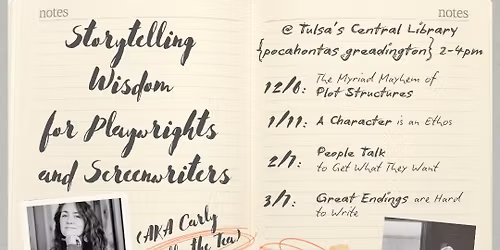 notes
Storytelling
Wisdom
for Playwrights
and Screenwriters
(AKA Carly
the Tea)
notes
@ Tulsa's Central Library
{pocahontas greadington} 2-4pm
12/6: The Myriad Mayhem of
Plot Structures
1/11: A Character is an Ethos
2/7: People Talk
to Get What They Want
3/7: Great Endings are Hard
to Write